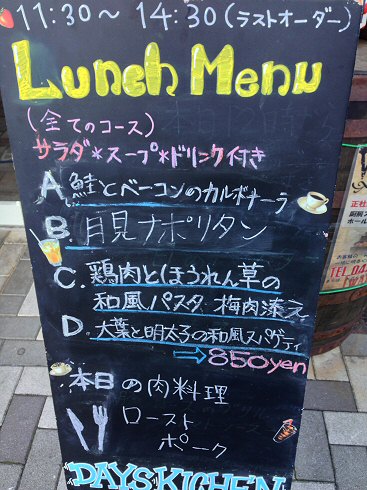 11:30～14:30(ラストオーダー)
Lunch Menu
(全てのコース)
サラダ*スープ*ドリンク付き
A. 鮭とベーコンのカルボナーラ
B. 月見ナポリタン
C. 鶏肉とほうれん草の
和風パスタ 梅肉添え
D. 大葉と明太子の和風スパゲティ
→850yen
本日の肉料理
ロースト
ポーク
DAYS KICHEN
正社
厨房ス
ホール
TEL.04